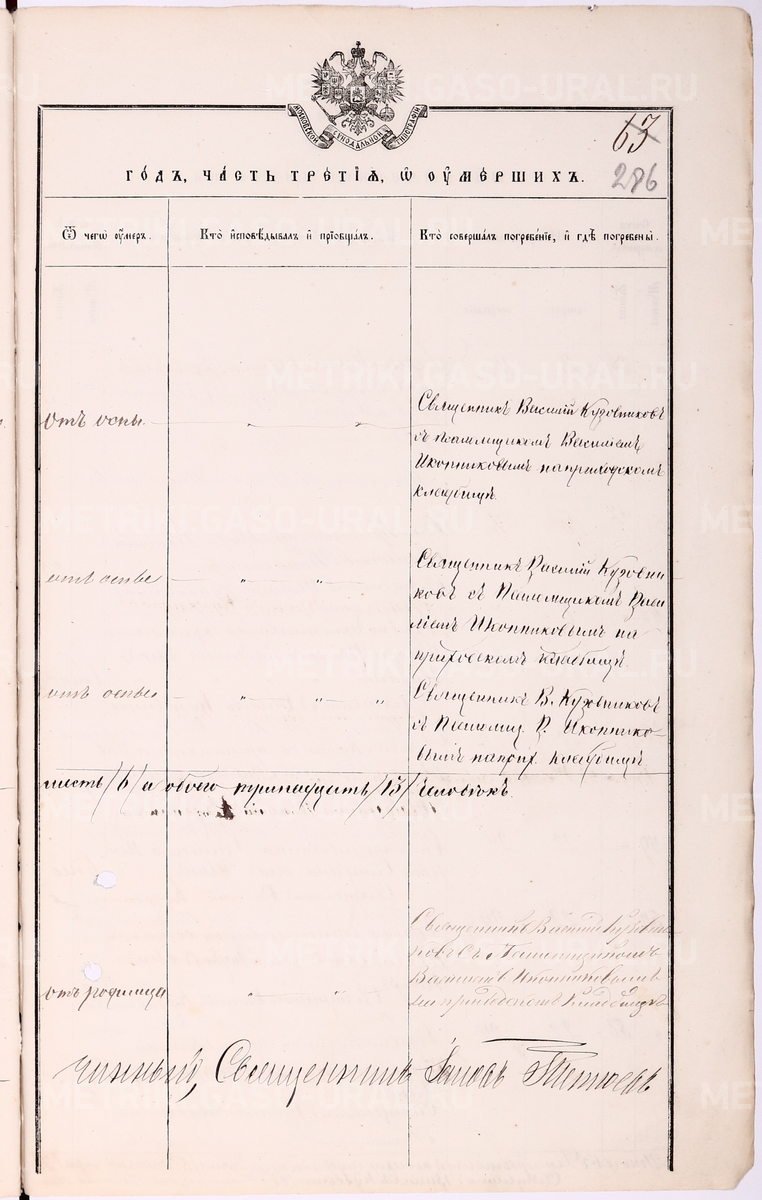 METRIKI.GASO-URAL.RU
МОСКОВСКОЙ СѴНОДАЛЬНОЙ ТИПОГРАФІИ
63
286
ГО́ДЪ, ЧА́СТЬ ТРЕ́ТІѦ, Ѽ ОУ҆МЕ́РШИХЪ.
Ѿ чегѡ̀ оу҆́меръ. Кто̀ и҆сповѣ́дывалъ и҆ прїѡбща́лъ. Кто̀ соверша́лъ погребе́нїе, и҆ гдѣ̀ погребены̀.
отъ оспы
Священникъ Василій Кузовниковъ
съ псаломщикомъ Василіемъ
Иконниковымъ на приходскомъ
кладбищѣ.
отъ оспы
Священникъ Василій Кузовни
ковъ съ Псаломщикомъ Васи
ліемъ Иконниковымъ на
приходскомъ кладбищѣ.
отъ оспы
Священникъ В. Кузовниковъ
съ Псаломщ. В. Иконнико-
вымъ на прих. кладбищѣ.
шесть /6/ а обоего тринадцать /13/ человѣкъ.
отъ родимца
Священникъ Василій Кузовни
ковъ съ Псаломщикомъ
Василіемъ Иконниковымъ
на приходскомъ кладбищѣ
чинный, Священникъ